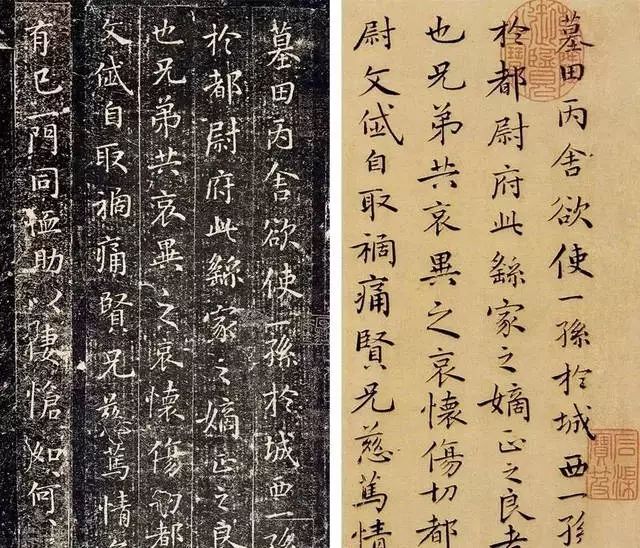 墓田丙舍欲使一孫於城西一孫
於都尉府此繇家之嫡正之良
也兄弟共哀異之哀懷傷切都
文岱自取禍痛賢兄慈篤情
有已一門同恤助以悽愴如何
墓田丙舍欲使一孫於城西一孫
於都尉府此繇家之嫡正之良者
也兄弟共哀異之哀懷傷切都
尉文岱自取禍痛賢兄慈篤情
石渠寶笈